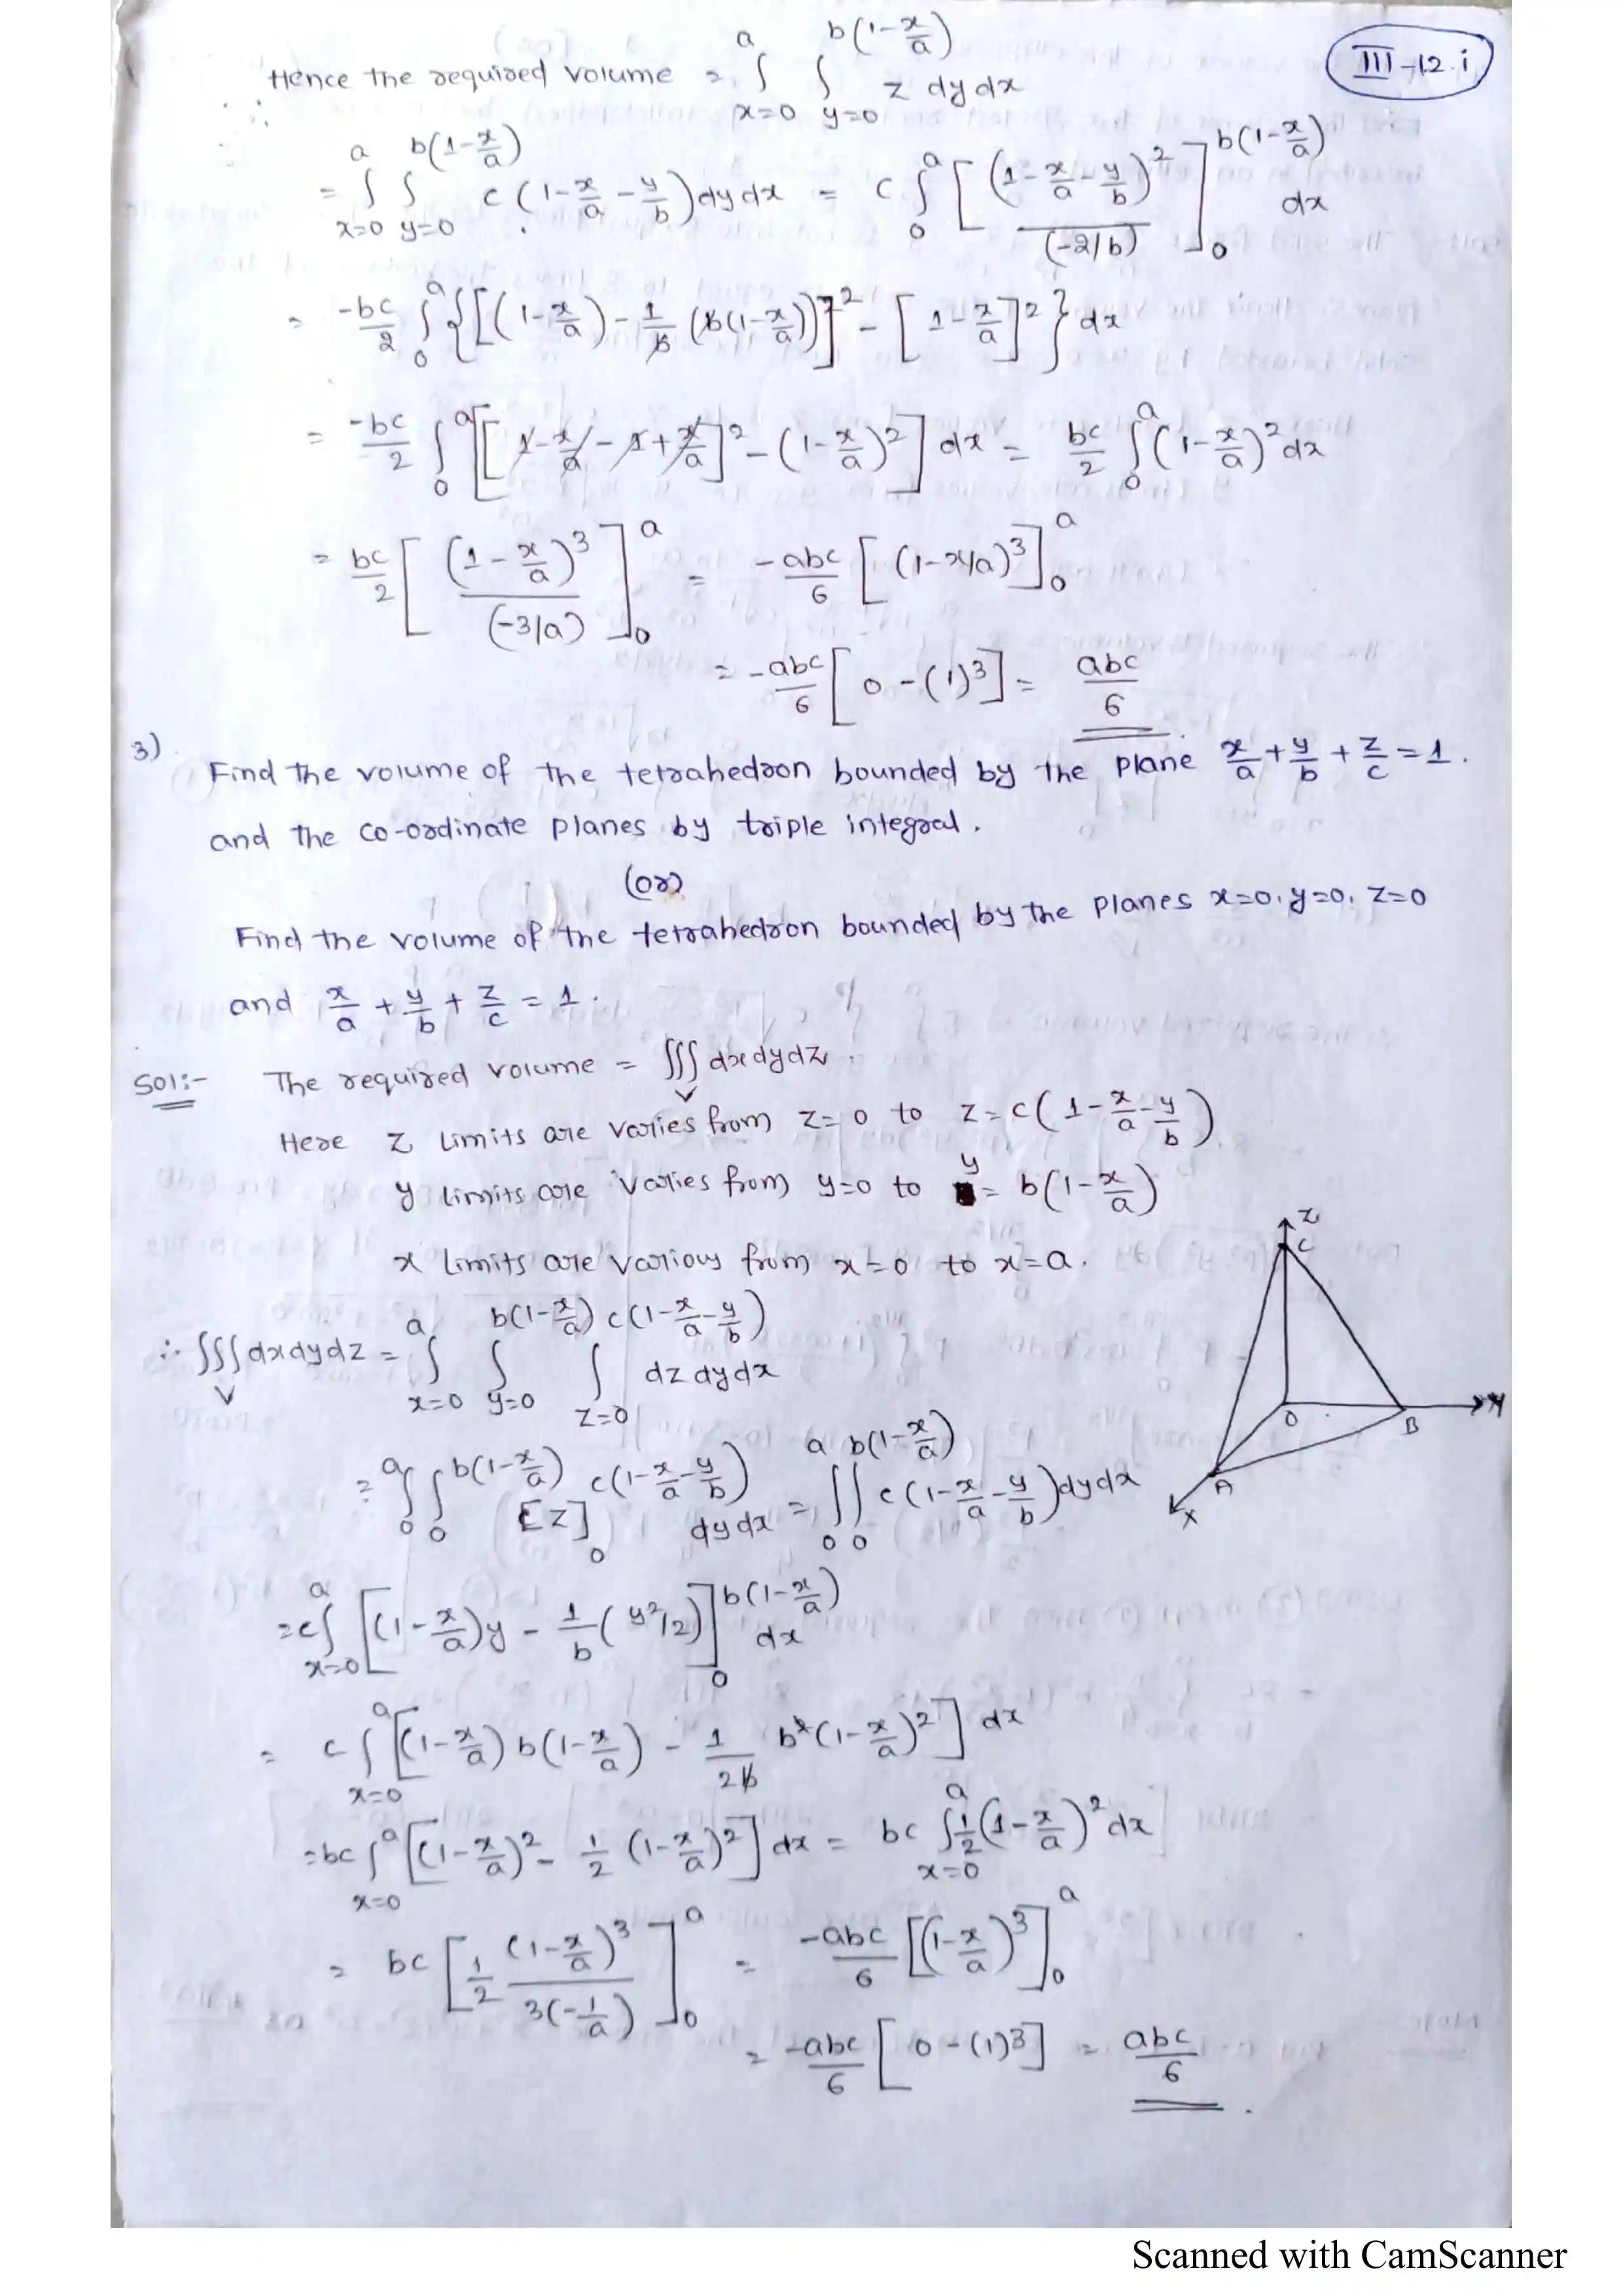 III-12.i
Hence the required volume = ∫_{x=0}^{a} ∫_{y=0}^{b(1-x/a)} z dy dx
∴
= ∫_{x=0}^{a} ∫_{y=0}^{b(1-x/a)} c(1-x/a-y/b) dy dx = c ∫_0^a [ (1-x/a-y/b)^2 / (-2/b) ]_0^{b(1-x/a)} dx
= -bc/2 ∫_0^a {[(1-x/a) - 1/b (b(1-x/a))]^2 - [1-x/a]^2} dx
= -bc/2 ∫_0^a [[1-x/a-1+x/a]^2 - (1-x/a)^2] dx = bc/2 ∫_0^a (1-x/a)^2 dx
= bc/2 [ (1-x/a)^3 / (-3/a) ]_0^a = -abc/6 [(1-x/a)^3]_0^a
= -abc/6 [0-(1)^3] = abc/6
3) Find the volume of the tetrahedron bounded by the plane x/a + y/b + z/c = 1.
and the co-ordinate planes by triple integral.
(or)
Find the volume of the tetrahedron bounded by the planes x=0, y=0, z=0
and x/a + y/b + z/c = 1.
Sol:- The required volume = ∫∫∫_V dx dy dz.
Here z limits are varies from z=0 to z=c(1-x/a-y/b)
y limits are varies from y=0 to y = b(1-x/a)
x limits are various from x=0 to x=a.
∴ ∫∫∫_V dx dy dz = ∫_{x=0}^{a} ∫_{y=0}^{b(1-x/a)} ∫_{z=0}^{c(1-x/a-y/b)} dz dy dx
= ∫_0^a ∫_0^{b(1-x/a)} [z]_0^{c(1-x/a-y/b)} dy dx = ∫_0^a ∫_0^{b(1-x/a)} c(1-x/a-y/b) dy dx
= c ∫_{x=0}^{a} [(1-x/a)y - 1/b (y^2/2)]_0^{b(1-x/a)} dx
= c ∫_{x=0}^{a} [(1-x/a) b(1-x/a) - 1/2b b^2 (1-x/a)^2] dx
= bc ∫_{x=0}^{a} [(1-x/a)^2 - 1/2 (1-x/a)^2] dx = bc ∫_{x=0}^{a} 1/2 (1-x/a)^2 dx
= bc [ 1/2 (1-x/a)^3 / 3(-1/a) ]_0^a = -abc/6 [(1-x/a)^3]_0^a
= -abc/6 [0-(1)^3] = abc/6.
Z
C
O
B
Y
A
X
Scanned with CamScanner